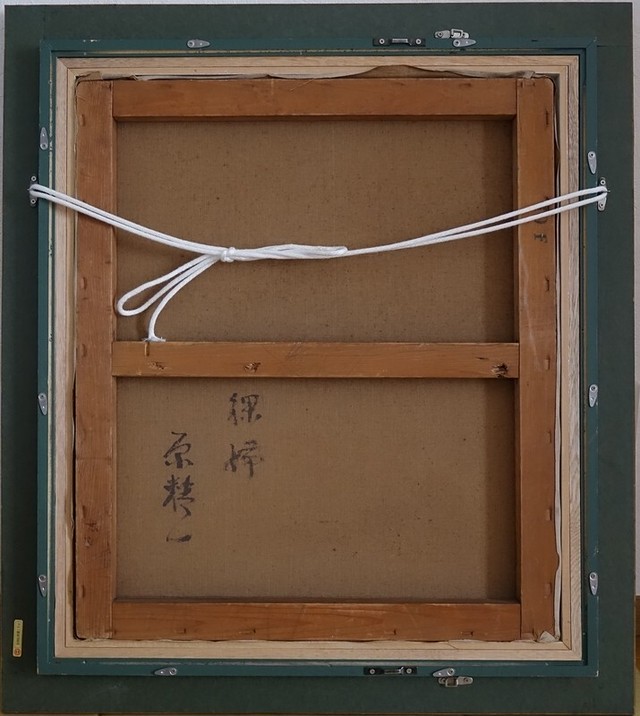 裸婦
原精一